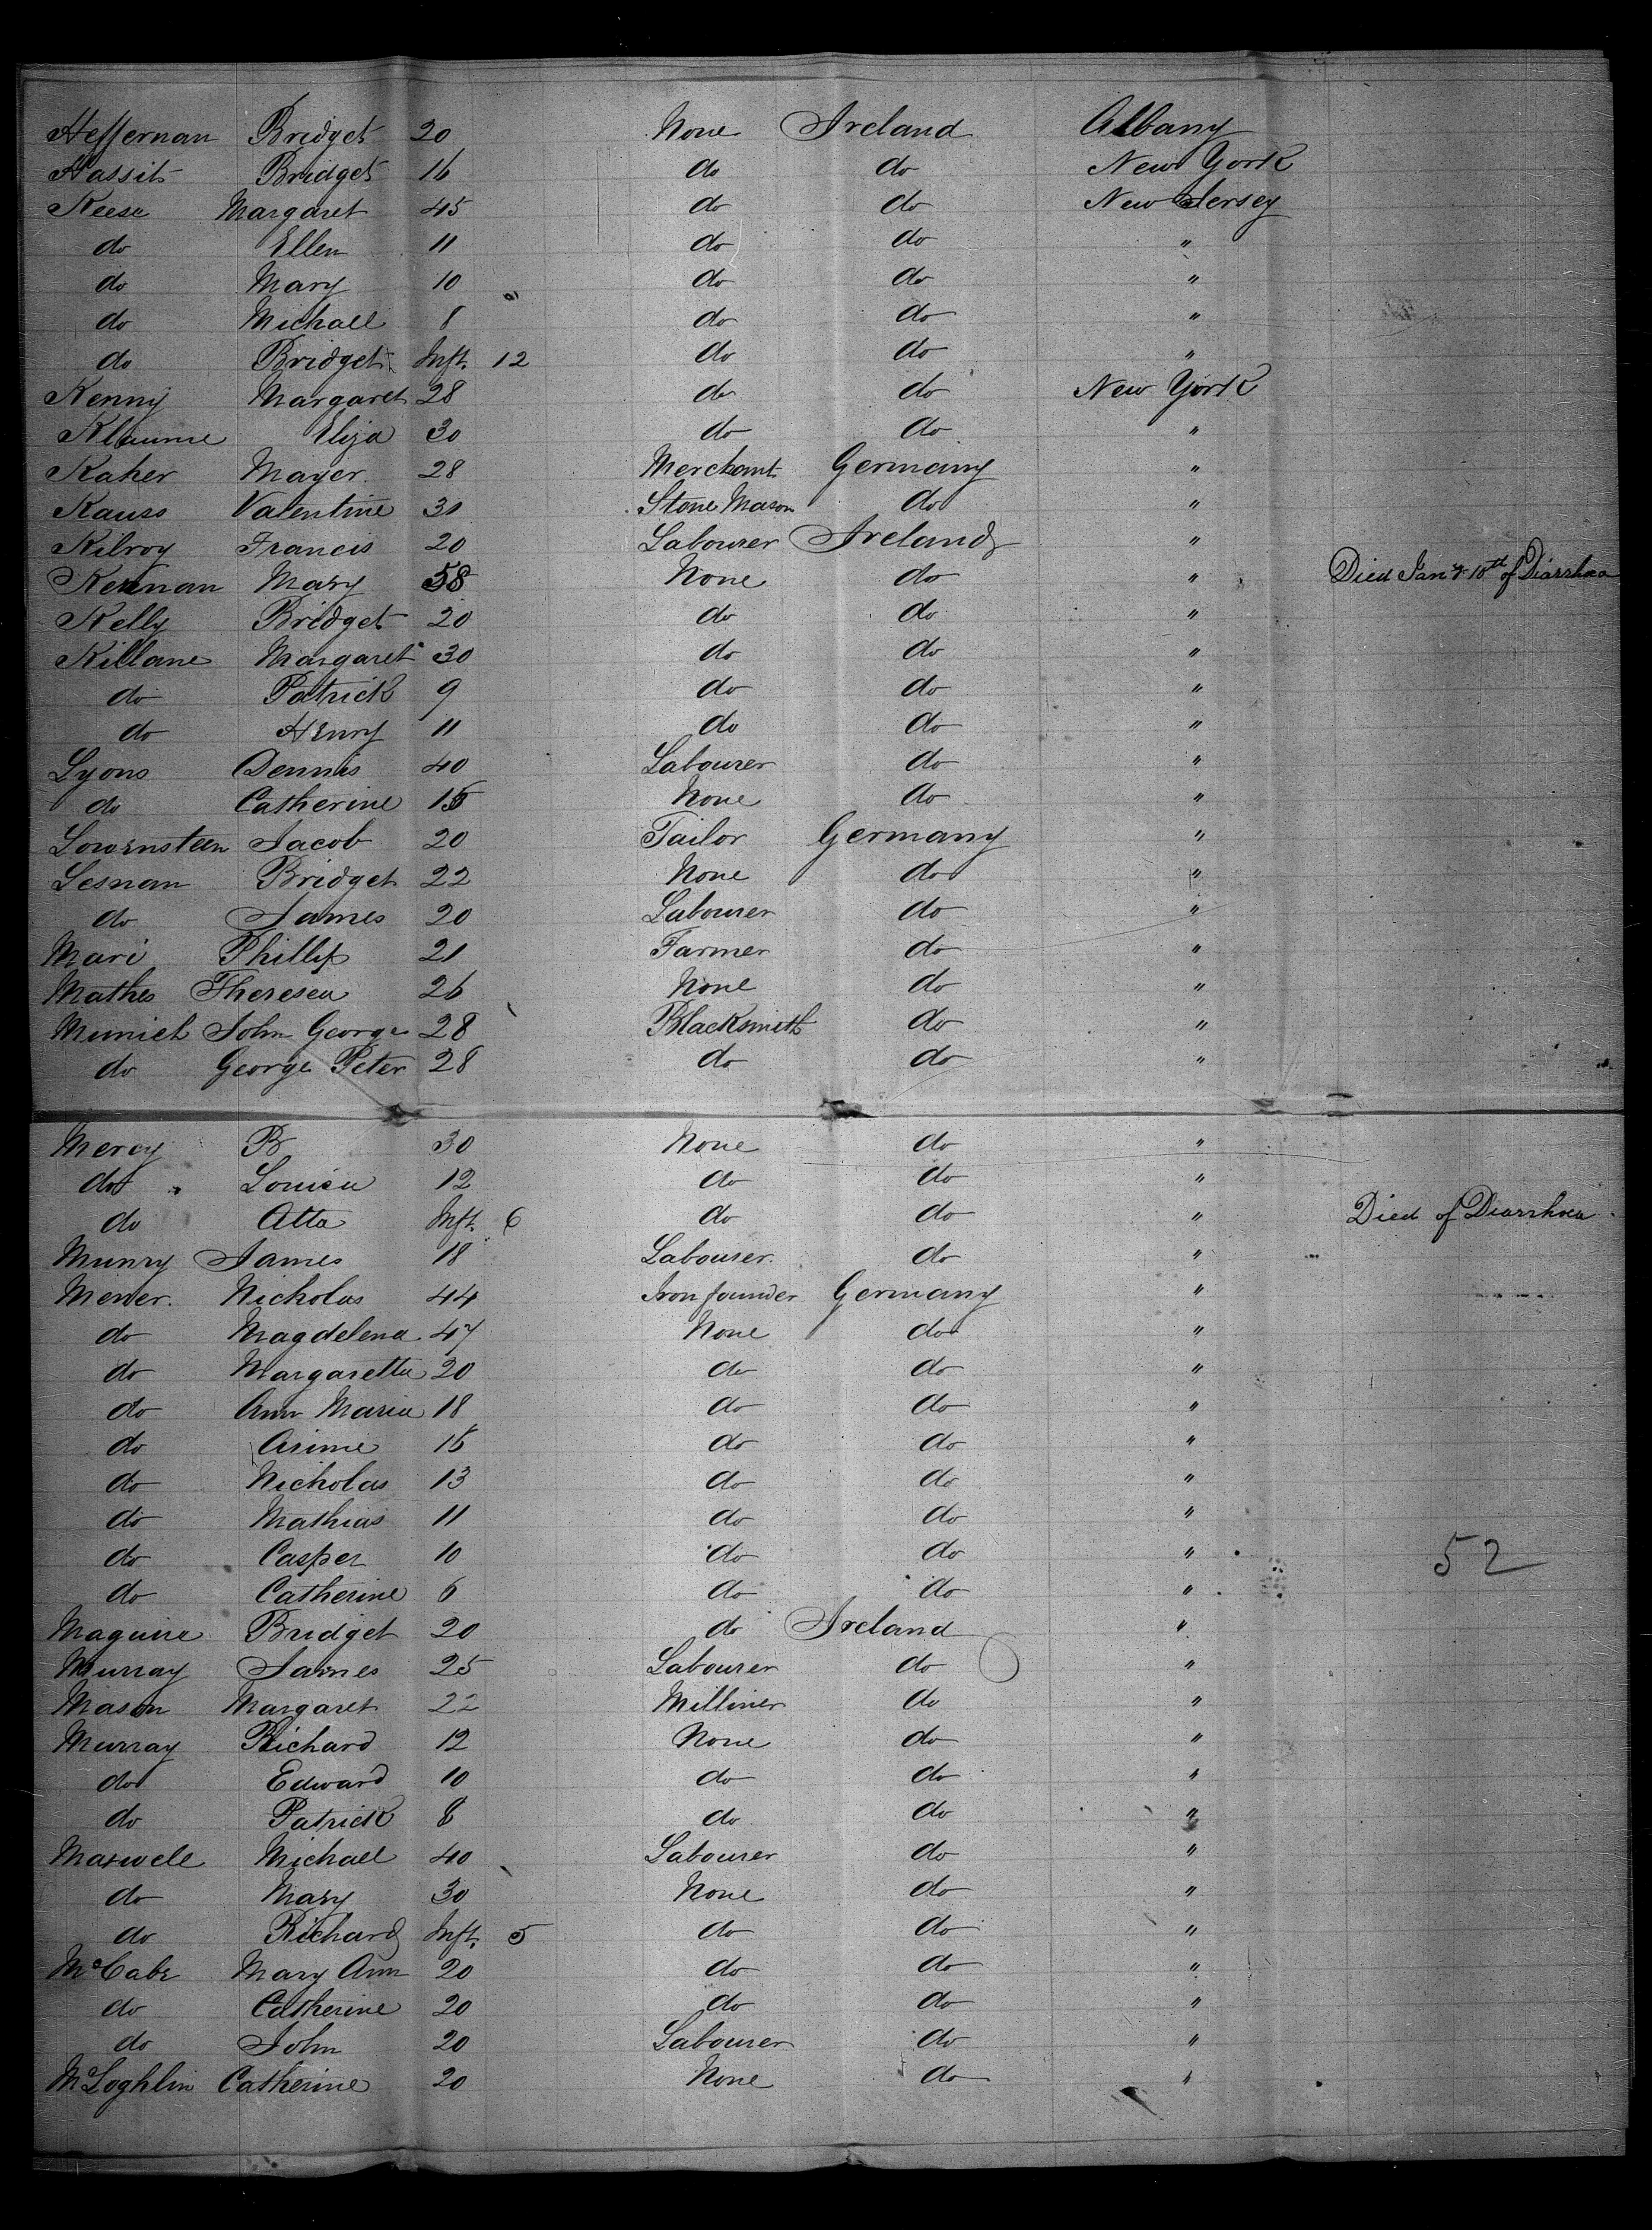 Heffernan Bridget 20 None Ireland Albany
Hassit Bridget 16 do do New York
Keese Margaret 45 do do New Jersey
do Ellen 11 do do "
do Mary 10 do do "
do Michall 8 do do "
do Bridget Inft. 12 do do "
Kenny Margaret 28 do do New York
Klaume Eliza 30 do do "
Kaher Mayer. 28 Merchant Germany "
Kauss Valentine 30 Stone Mason do "
Kilroy Francis 20 Labourer Ireland "
Kernan Mary 58 None do " Died Jany 10th of Diarrhœa
Kelly Bridget 20 do do "
Killane Margaret 30 do do "
do Patrick 9 do do "
do Henry 11 do do "
Lyons Dennis 40 Labourer do "
do Catherine 15 None do "
Lowensteen Jacob 20 Tailor Germany "
Lesnan Bridget 22 None do "
do James 20 Labourer do "
Mari Phillip 21 Farmer do "
Mathes Theresea 26 None do "
Munich John George 28 Blacksmith do "
do George Peter 28 do do "
Mercy B 30 None do "
do Louisa 12 do do "
do Atta Inft. 6 do do " Died of Diarrhœa
Munry James 18 Labourer. do "
Mener. Nicholas 44 Iron founder Germany "
do Magdelena 47 None do "
do Margaretta 20 do do "
do Ann Maria 18 do do "
do 16 do do "
do Nicholas 13 do do "
do Mathias 11 do do "
do Casper 10 do do " 52
do Catherine 6 do do "
Maguire Bridget 20 do Ireland "
Murray James 25 Labourer do "
Mason Margaret 22 Milliner do "
Murray Richard 12 None do "
do Edward 10 do do "
do Patrick 8 do do "
Maxwell Michall 40 Labourer do "
do Mary 30 None do "
do Richard Inft. 5 do do "
McCabe Mary Ann 20 do do "
do Catherine 20 do do "
do John 20 Labourer do "
McLoghlin Catherine 20 None do "